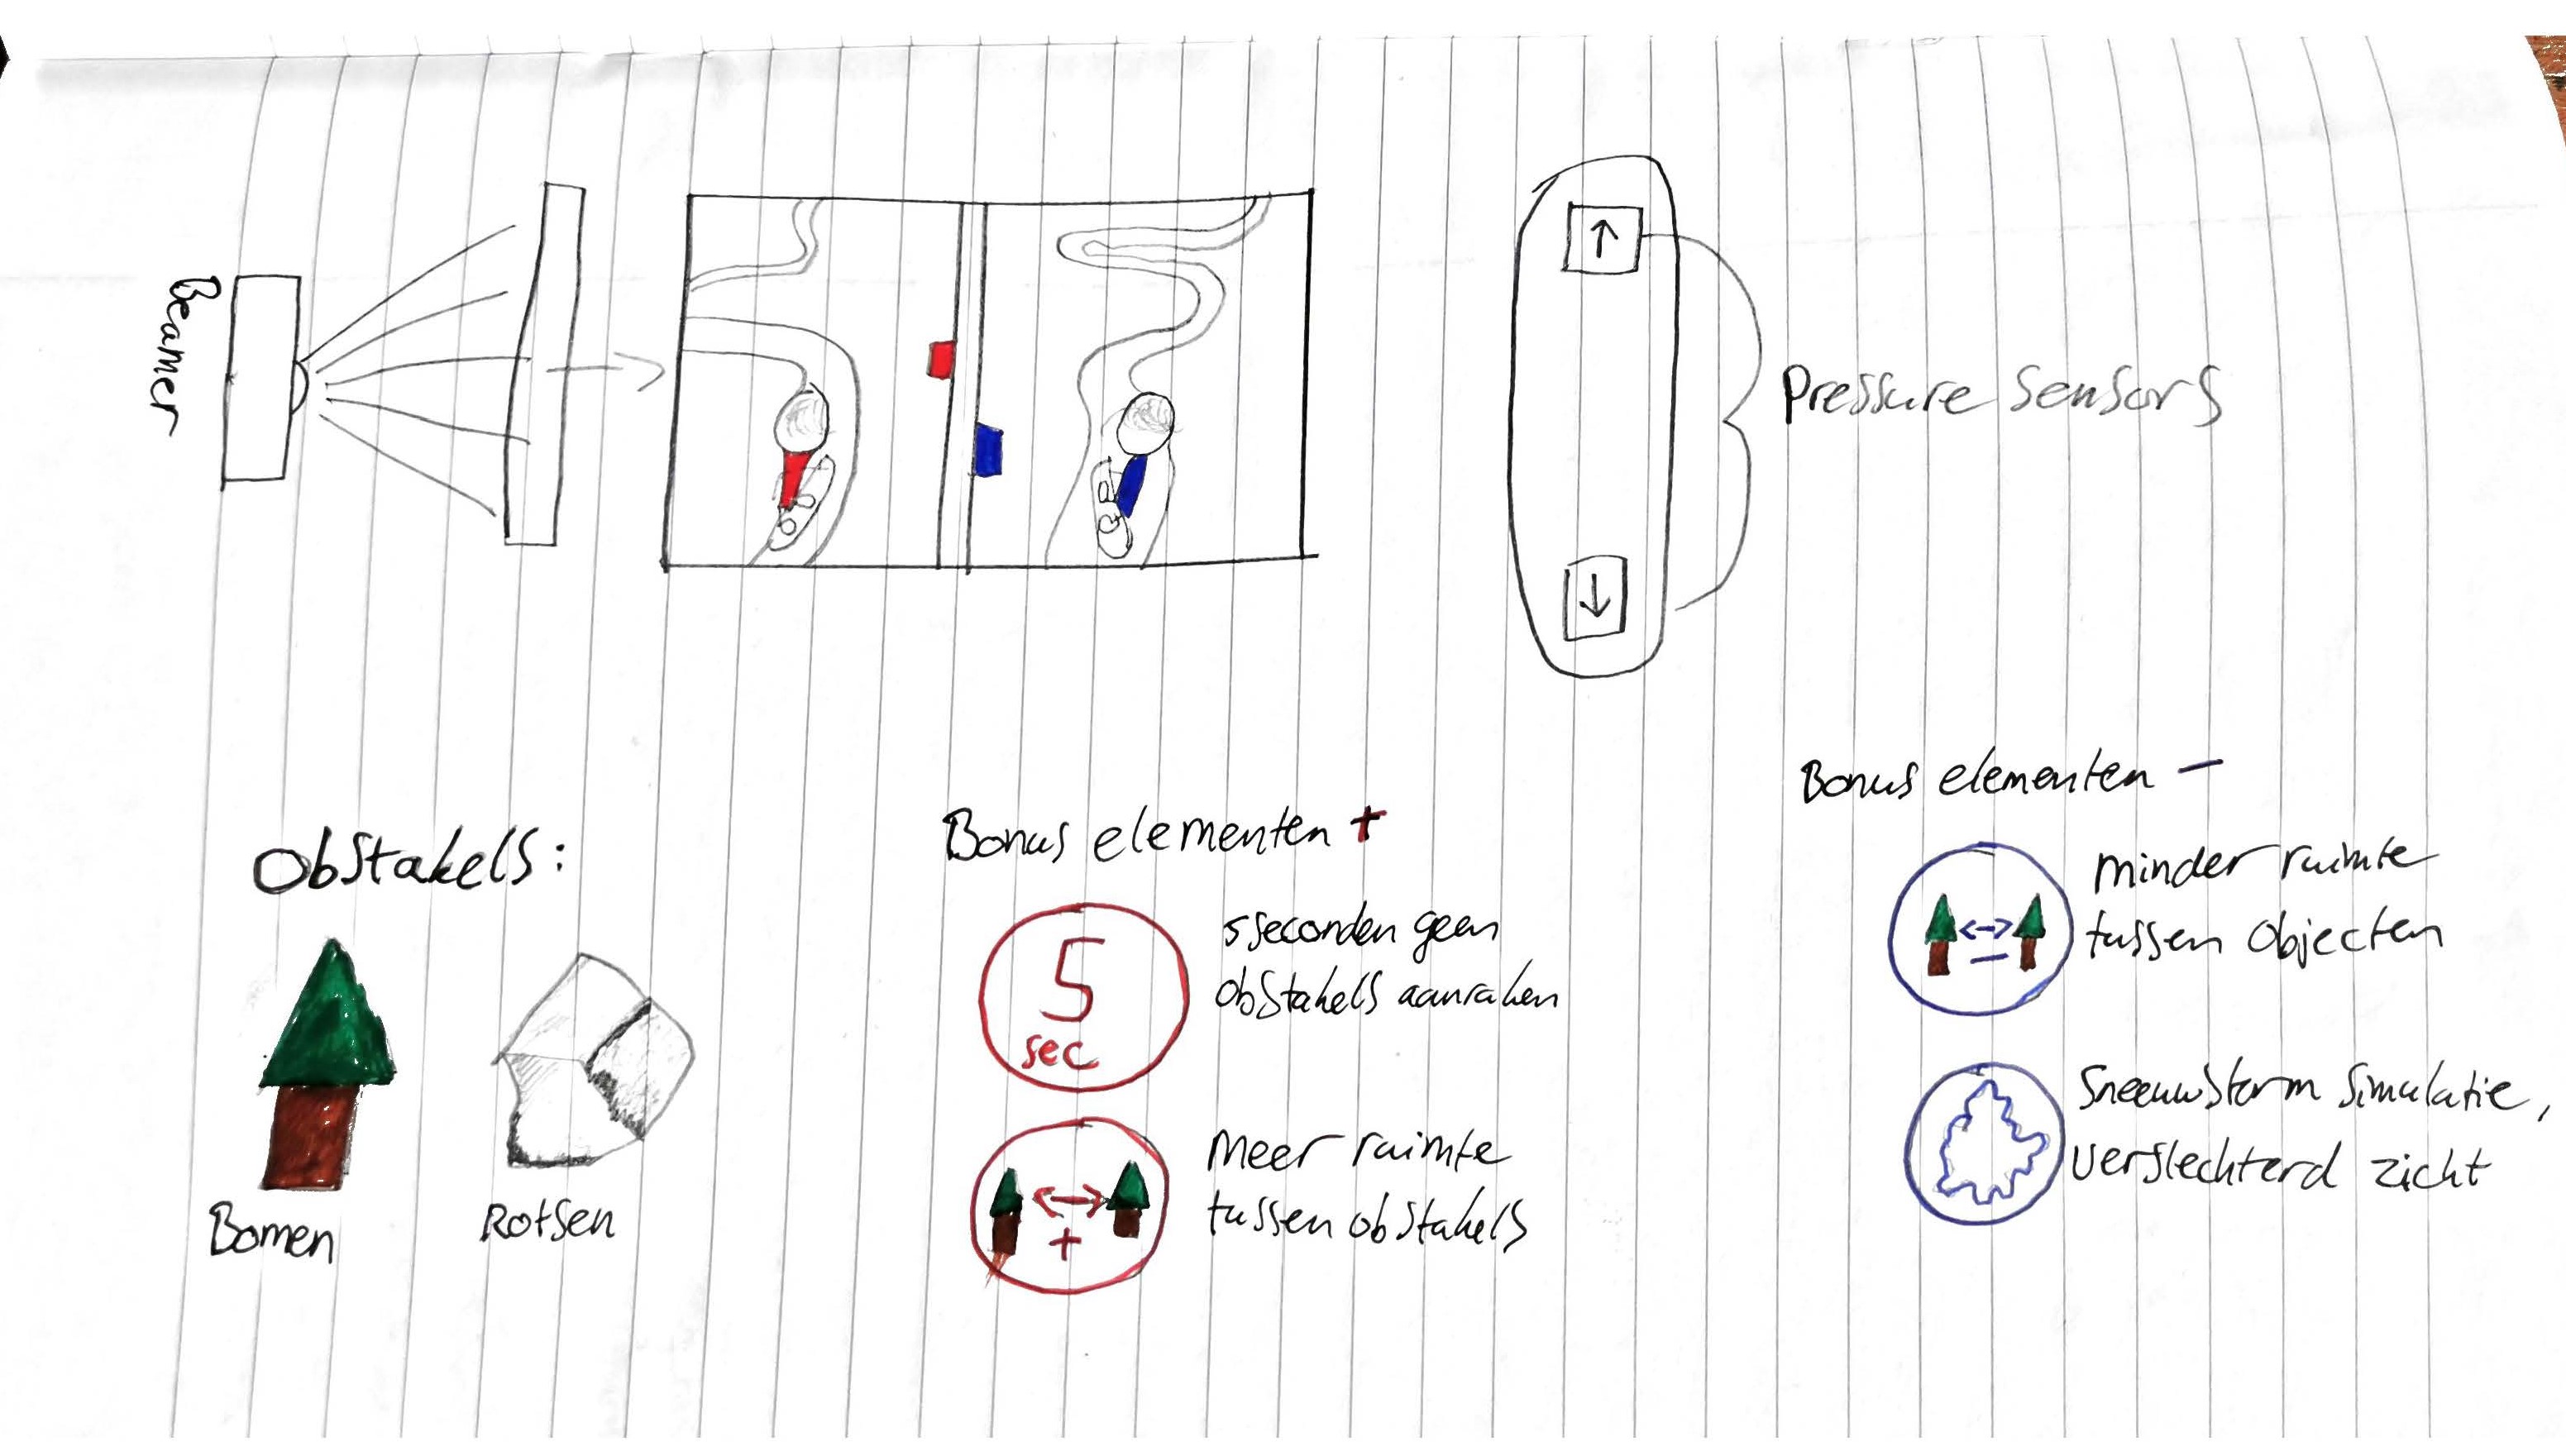 Beamer
Pressure Sensors
Obstakels:
Bomen
Rotsen
Bonus elementen +
5 sec
5seconden geen
obstakels aanraken
+
Meer ruimte
tussen obstakels
Bonus elementen -
-
minder ruimte
tussen objecten
Sneeuwstorm simulatie,
verslechterd zicht